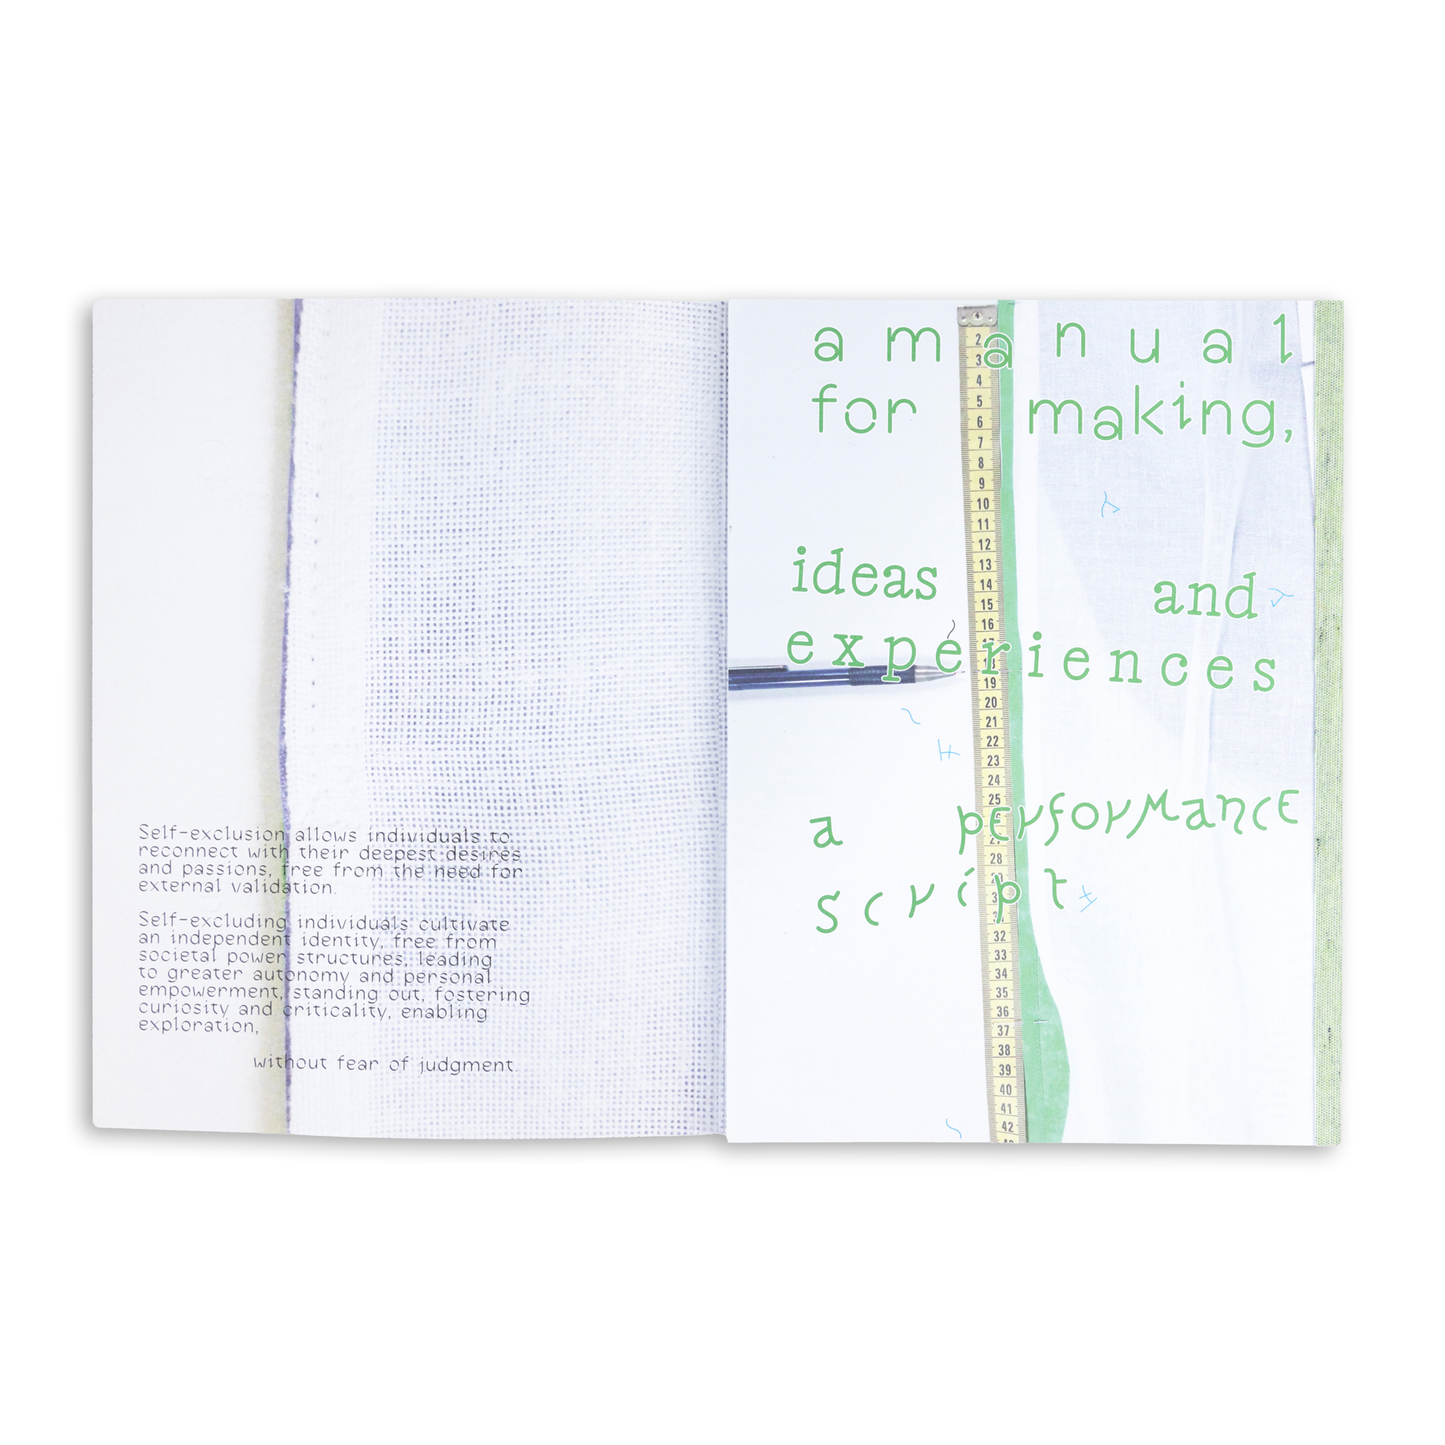 Self-exclusion allows individuals to
reconnect with their deepest desires
and passions, free from the need for
external validation.
Self-excluding individuals cultivate
an independent identity, free from
societal power structures, leading
to greater autonomy and personal
empowerment, standing out, fostering
curiosity and criticality, enabling
exploration,
without fear of judgment.
a manual
for making,
ideas and
experiences
a performance
script
2
3
4
5
6
7
8
9
10
11
12
13
14
15
16
17
18
19
20
21
22
23
24
25
27
28
32
33
34
35
36
37
38
39
40
41
42